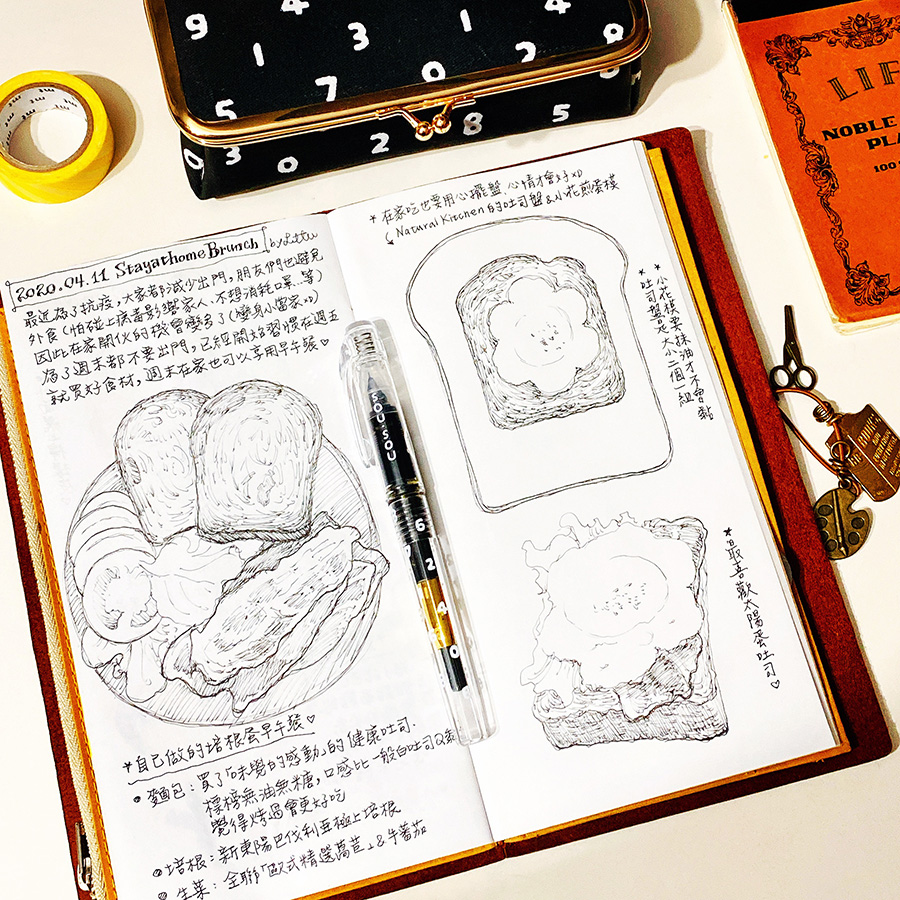 9 4
1 3
7 0 2
5
0 3 0 2 8 5
mt
LIF
NOBLE
PLA
100
2020.04.11 Stayathome Brunch
最近為了抗疫，大家都減少出門，朋友們也避免
外食（怕碰上病毒影響家人、不想消耗口罩...等）
因此在家開伙的機會變多了（變身小當家xD）
為了週末都不要出門，已經開始習慣在週五
就買好食材，週末在家也可以享用早午餐♡
*自己做的培根蛋早午餐♡
●麵包：買了「味覺的感動」的健康吐司.
標榜無油無糖，口感比一般白吐司Q
覺得烤過會更好吃
●培根：新東陽巴伐利亞極上培根
●生菜：全聯「歐式精選萵苣」&牛番茄
SOU·SOU
6
2
4
0
*在家吃也要用心擺盤 心情才會好xD
（Natural Kitchen的吐司盤&小花煎蛋模
*小花模要抹油才不會黏
*吐司盤是大小二個一組
*最喜歡太陽蛋吐司♡